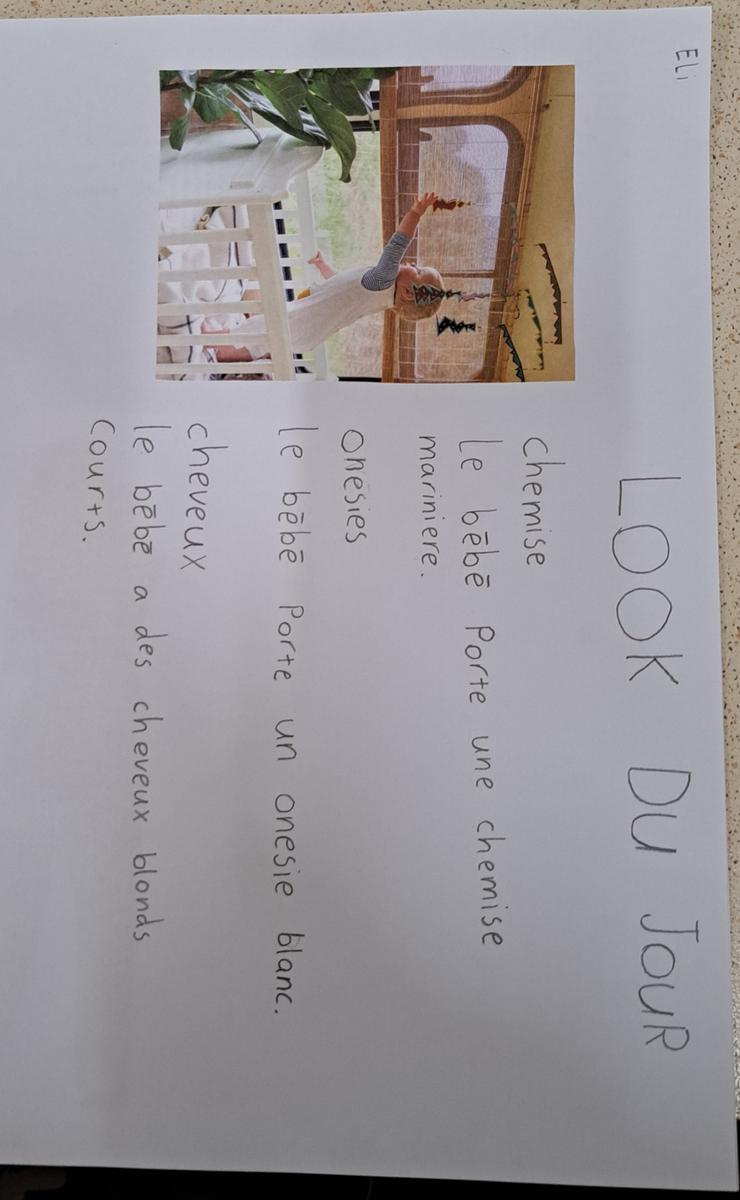 ELi
LOOK DU JOUR
chemise
Le bēbē Porte une chemise
mariniere.
onēsies
le bēbē Porte un onesie blanc.
cheveux
le bēbē a des cheveux blonds
Courts.